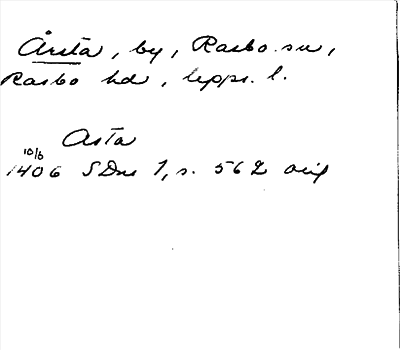 Årsta, by, Rasbo sn,
Rasbo hd, Upps. l.
Asta
10/6
1406 SDns 1, s. 562 orig